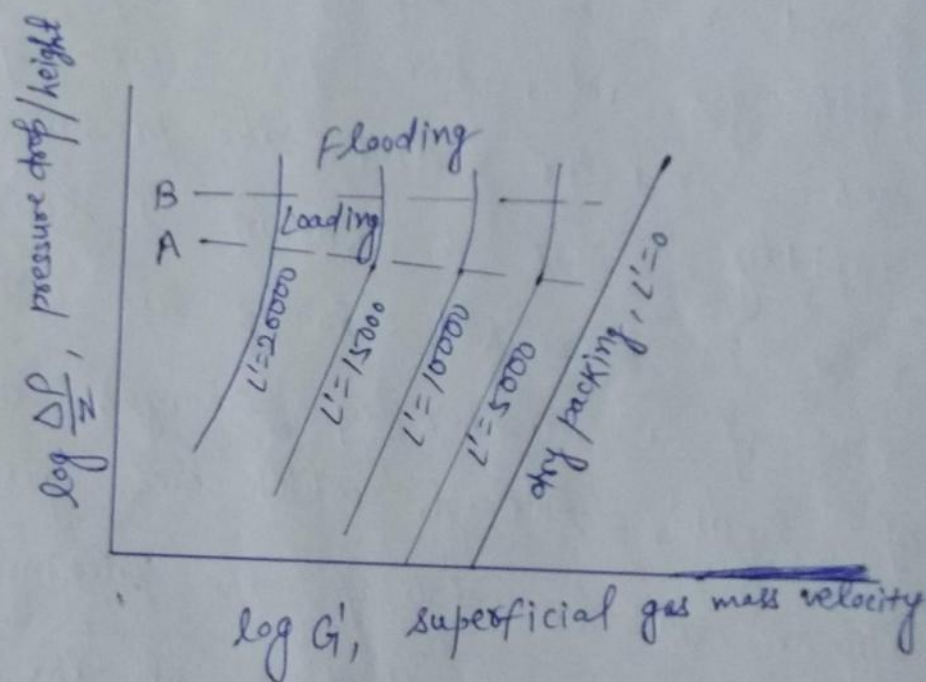 log ΔP/Z, pressure drop/height
Flooding
B
Loading
A
L'=20000
L'=15000
L'=10000
L'=5000
dry packing, L'=0
log G', superficial gas mass velocity